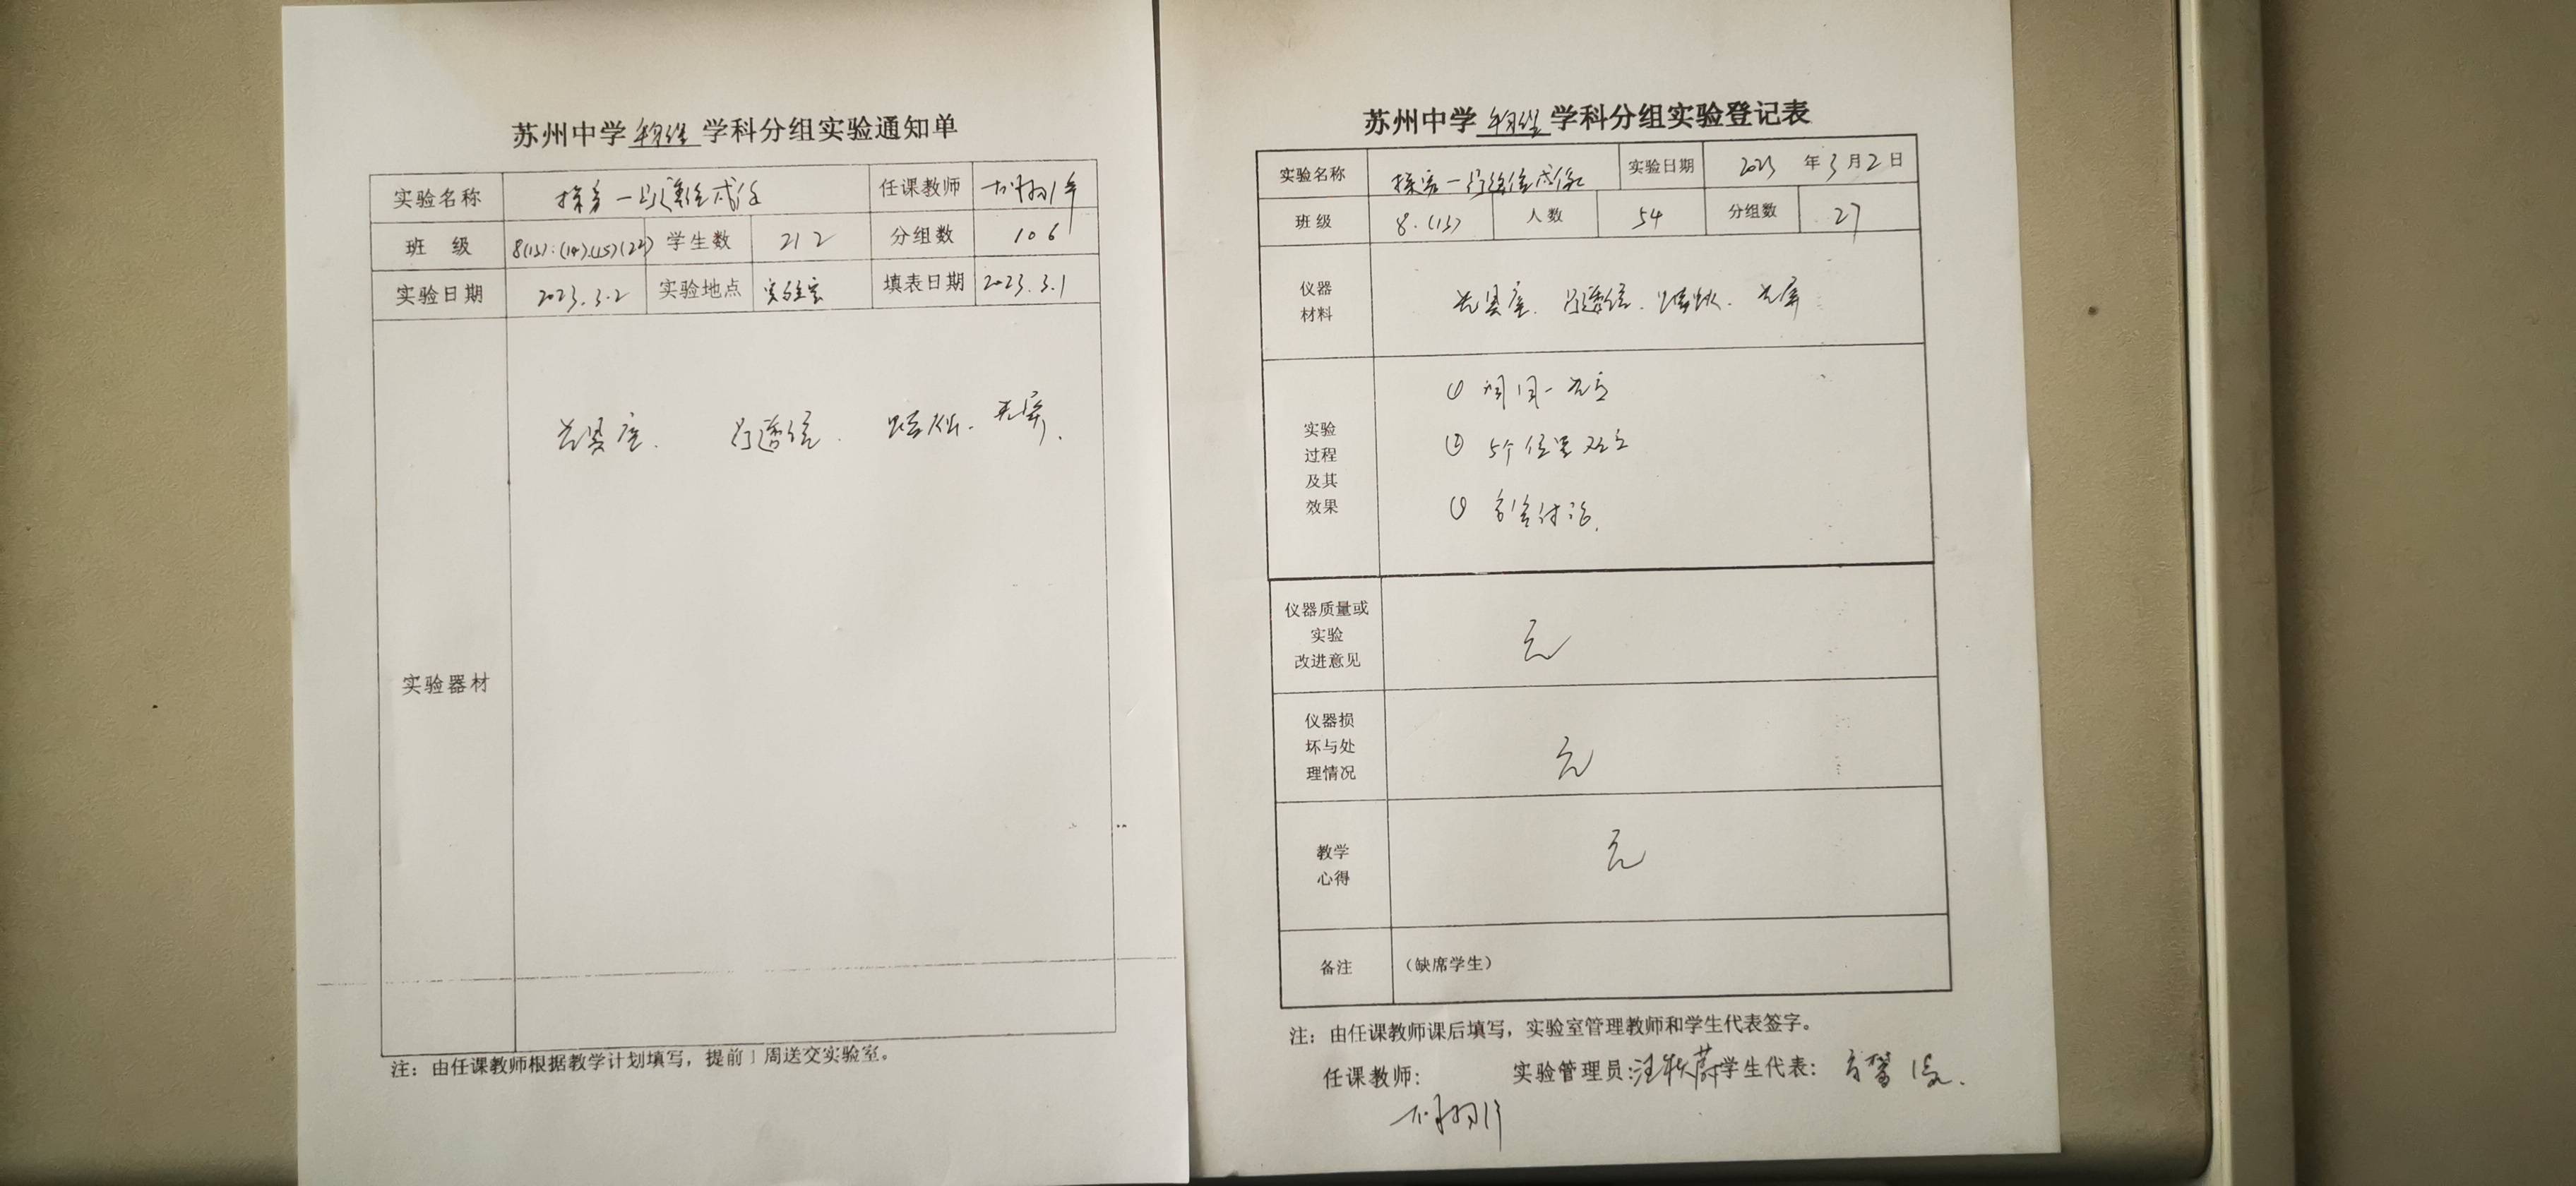 苏州中学 物理 学科分组实验通知单
实验名称 探究凸透镜成像 任课教师
班 级 8(13).(14).(15)(22) 学生数 212 分组数 106
实验日期 2023.3.2 实验地点 实验室 填表日期 2023.3.1
实验器材
光具座. 凸透镜. 蜡烛. 光屏.
注：由任课教师根据教学计划填写，提前1周送交实验室。
苏州中学 物理 学科分组实验登记表
实验名称 探究凸透镜成像 实验日期 2023 年 3 月 2 日
班级 8.(13) 人数 54 分组数 27
仪器
材料
光具座. 凸透镜. 蜡烛. 光屏
实验
过程
及其
效果
① 调同一高度
② 5个位置
③ 讨论.
仪器质量或
实验
改进意见
无
仪器损
坏与处
理情况
无
教学
心得
无
备注 （缺席学生）
注：由任课教师课后填写，实验室管理教师和学生代表签字。
任课教师： 实验管理员： 学生代表：